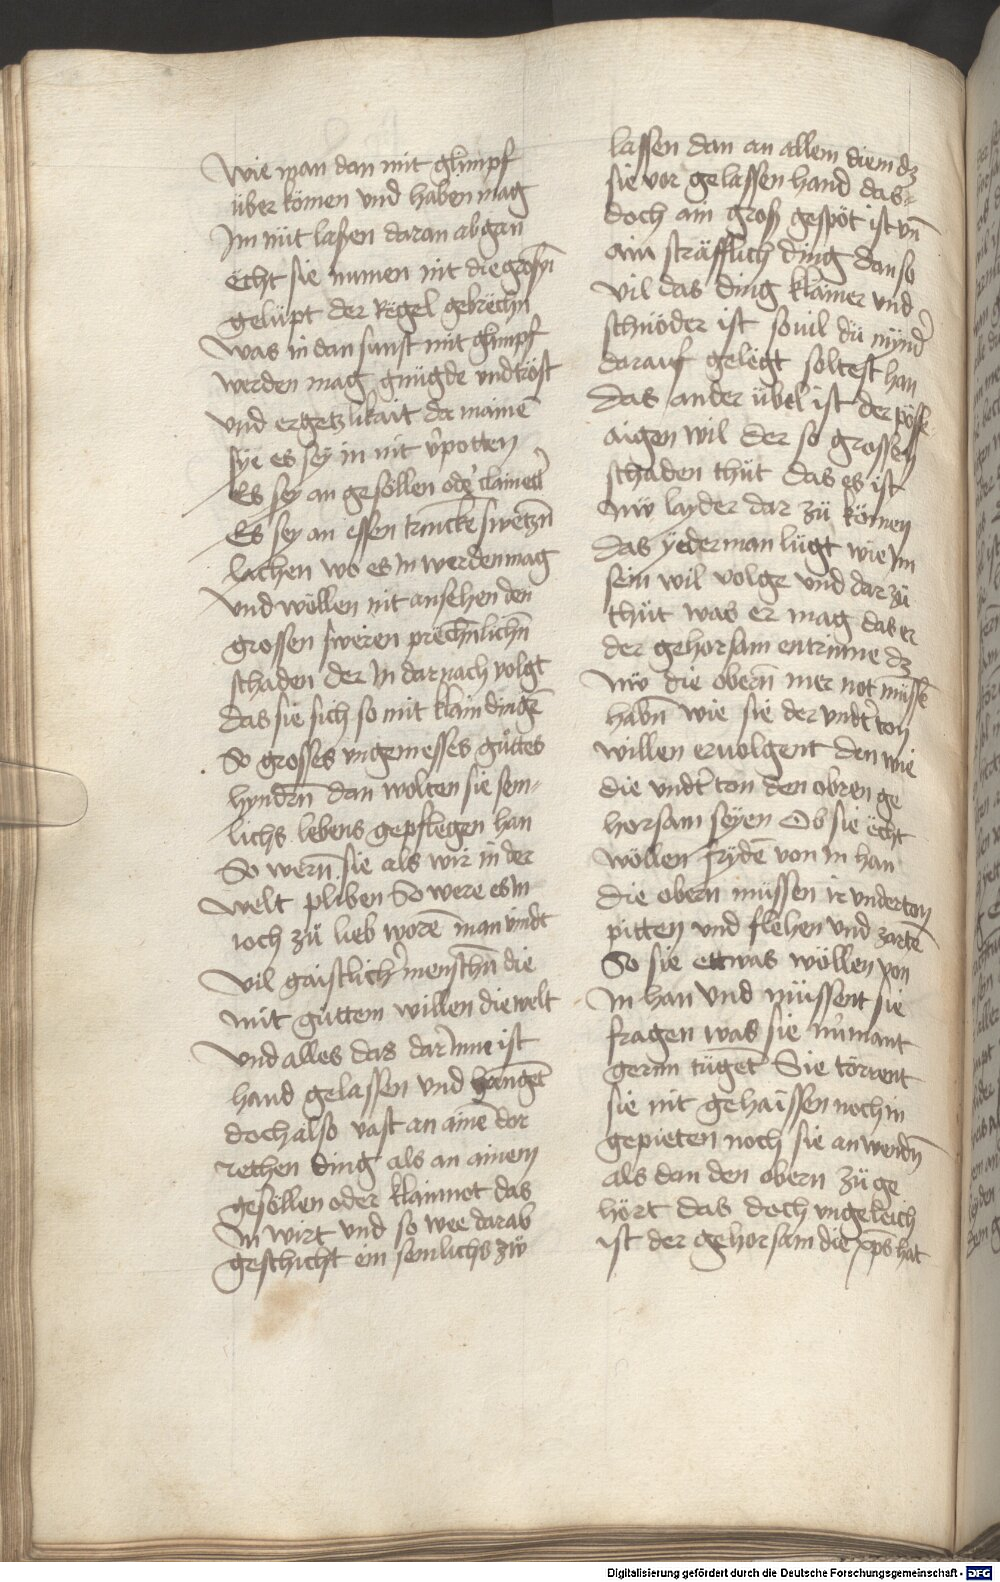 Wie man dan mit glimpf
über kömen vnd haben mag
Im nüt lasen daran abgan
ëcht sie numen nit die grosȳ
gelüpt der Regel gebrechn̄
Was in dan sunst mit glimpf
werden mag gnügde vnd tröst
vnd ergetzlikait da mainē
sÿe es seÿ in nit v̉potten
Es seÿ an gesöllen oď clainett̉
Es seÿ an essen trincken swetzn̄
lachen wo es In werden mag
Vnd wöllen nit ansehen den
grossen sweren prëchn̄lichn̄
schaden der In darnach volgt
das sie sich so mit klain dingē
So grosses vngemesses gůttes
hyndrn̄ dan wolten sie sem-
lichs lebens gepflegen han
So wern̄ sie als wir in der
welt pliben So were es In
ioch zü lieb worē man vindt
Vil gaistlich̉ menschn̄ die
mit güttem willen die welt
Vnd alles das dar Inne ist
hand gelassen vnd hangēt
doch also vast an aine dor
rechen ding als an ainem
gesöllen oder klainnot das
In wirt vnd so wee darab
geschicht ein semlichs zü
lassen dan an allem diem dz
sie vor gelassen hand das-
doch ain groß gespöt ist vn̄
ain sträfflich ding dan so
vil das ding klainer vnd
schnöder ist souil dü mynd̉
darauf gelëgt soltest han
Das ander übel ist der pösse
aigen wil der so grossen
schaden thüt das es ist
nw layder dar zü kömen
Das ÿederman lügt wie Im
sein wil volge vnd dar zü
thüt was er mag das er
der gehorsam entrinne dz
nw die obern̄ mer not müssē
habn̄ wie sie der vndt̉ton
willen eruolgent den wie
die vndt̉ton den obren ge
horsam seÿen Ob sie ëcht
wöllen frÿdē von In han
die obern müssen ir vnderton
pitten vnd flehen vnd zartē
So sie ettwas wöllen von
In han Vnd müssent sie
fragen was sie
gernn tüget Sie törrent
sie nit gehaissen noch in
gepieten noch sie anwendn̄
als dan den obern zü ge
hört das doch vngeleich
ist der gehorsam die xp̄s hat
Digitalisierung gefördert durch die Deutsche Forschungsgemeinschaft - DFG